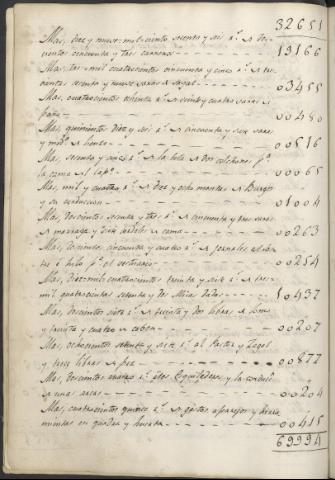 32651
Mas, diez y nueve mil ciento sesenta y seis r.s de
cientos cincuenta y tres carneros 19166
Mas, tres mil cuatrocientos cincuenta y cinco r.s de
cientos setenta y nueve varas de sayal 03455
Mas, cuatrocientos ochenta r.s de veinte y cuatro varas de
paño 00480
Mas, quinientos diez y seis r.s de cincuenta y seis varas
y md.ª de lienzo 00516
Mas, sesenta y cinco r.s de la tela de dos colchones p.ª
la cama del 00065
Mas, mil y cuatro r.s de doce y ocho mantas de Burgos
y su conduccion 01004
Mas, doscientos sesenta y tres r.s de cincuenta y tres varas
de marraga y diez de cama 00263
Mas, doscientos cincuenta y cuatro r.s de jornales
é hilo p.ª el vestuario 00254
Mas, diez mil cuatrocientos treinta y siete r.s de tres
mil quatrocientas setenta y dos 10437
Mas, doscientos siete r.s de treinta y dos libras de
y treinta y cuatro de cabra 00207
Mas, ochocientos setenta y siete r.s al Pastor y Zagal
y tres libras de pez 00877
Mas, doscientos cuatro r.s á los Esquiladores y la
de unas sacas 00204
Mas, cuatrocientos quince r.s de gastos aparejos y herra
mientas en quadra y huerta 00415
69994